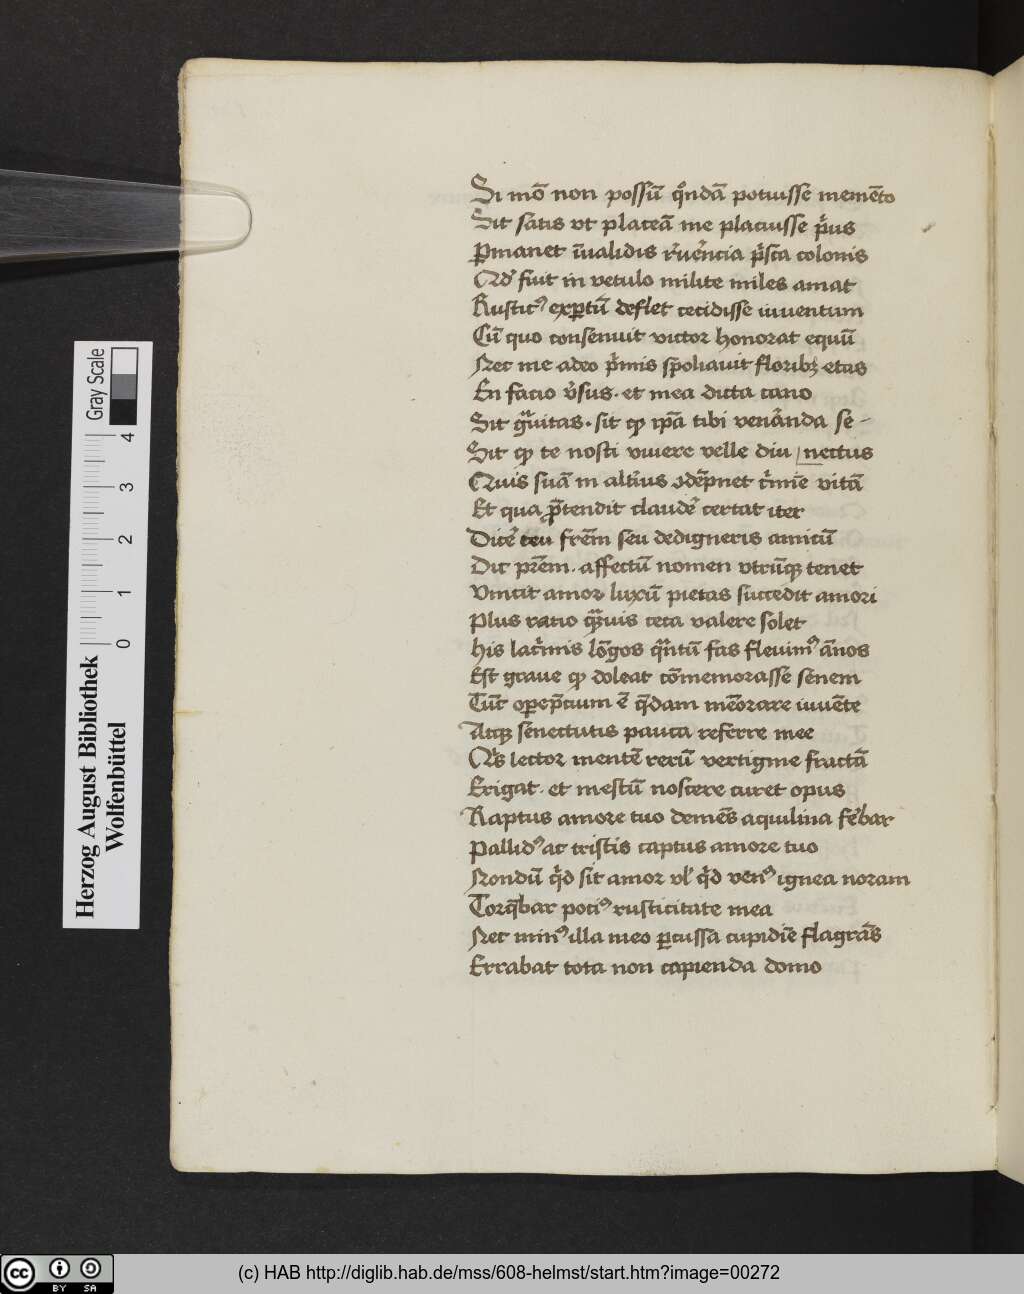 Si mō non possū qͦndā potuisse memēto
Sit satis vt placeā me placuisse pͥus
Pmanet īualidis rꝰuēncia pͥsca colonis
Qd fuit in vetulo milite miles amat
Rusticꝰ expertū deflet cecidisse iuuentum
Cū quo consenuit victor honorat equū
Nec me adeo pͥmis spoliauit floribꝫ etas
En facio vͥsus · et mea dicta cano
Sit gͣuitas · sit qȝ ipā tibi venͣanda se-
Sit qȝ te nosti viuere velle diu nectus
Quis suā in altͥius odēpnet cͥmīe vitā
Et qua ꝓtendit claudeͥ certat iter
Dicēͥ ceu frēm seu dedigneris amicū
Dic prēm · affectū nomen vtrūqꝫ tenet
Vincit amor luxū pietas succedit amori
Plus racio qͣꝫuis ceca valere solet
his lacͥmis lōgos qͣntū fas fleuimꝰ ānos
Est graue qȝ doleat cōmemorasse senem
Tūc operpͥcium ē qͥdam meōrare iuuēte
Atqꝫ senectutis pauca referre mee
Qͦs lector mentē rerū vertigine fractā
Erigat · et mestū noscere curet opus
Raptus amore tuo demēs aquilina feͥbar
Pallidꝰ ac tristis captus amore tuo
Nondū qͥd sit amor vl qͥd venꝰ ignea noram
Torqͤbar pociꝰ rusticitate mea
Nec minꝰ illa meo percussa cupidīe flagrās
Errabat tota non capienda domo
Herzog August Bibliothek
Wolfenbüttel
0 1 2 3 4
Gray Scale
cc BY SA
(c) HAB http://diglib.hab.de/mss/608-helmst/start.htm?image=00272